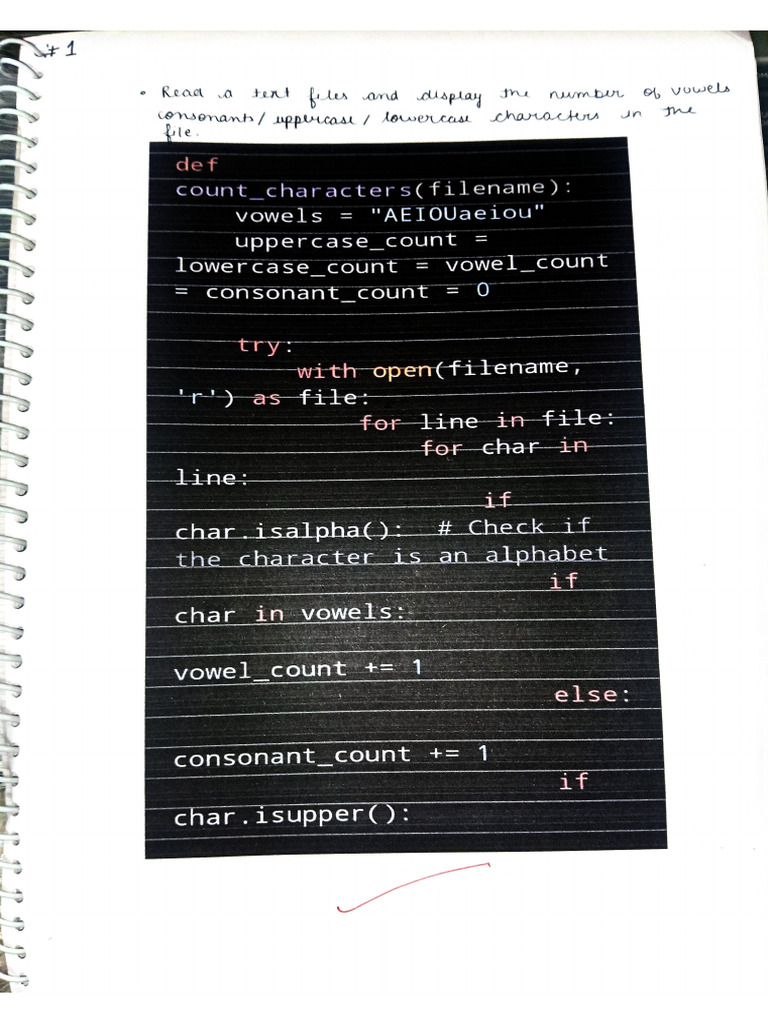 #1
• Read a text files and display the number of vowels
consonants/ uppercase / lowercase characters in the
file.
def
count_characters(filename):
vowels = "AEIOUaeiou"
uppercase_count =
lowercase_count = vowel_count
= consonant_count = 0
try:
with open(filename,
'r') as file:
for line in file:
for char in
line:
if
char.isalpha():  # Check if
the character is an alphabet
if
char in vowels:
vowel_count += 1
else:
consonant_count += 1
if
char.isupper():